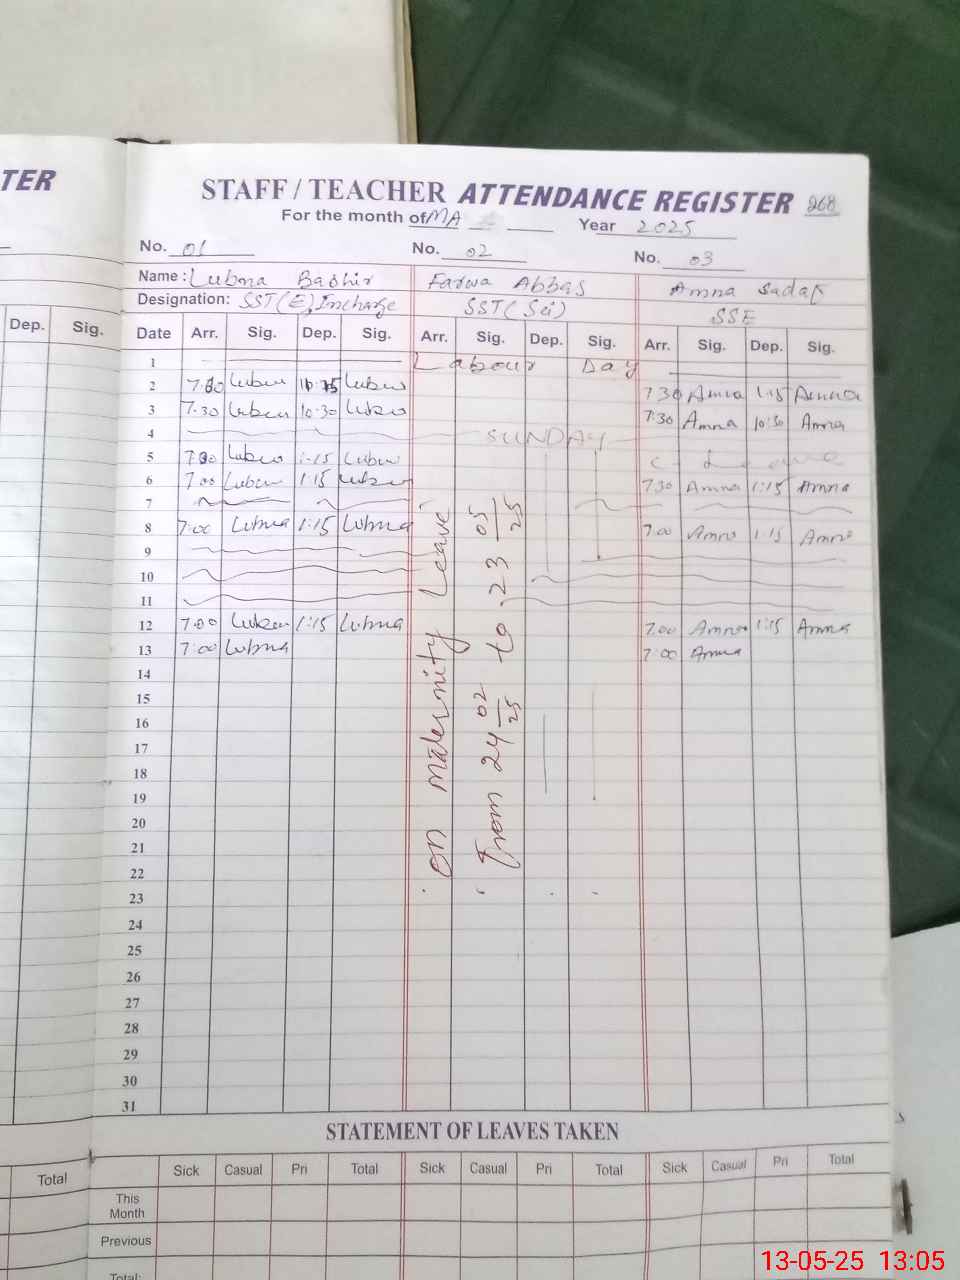 TER
STAFF / TEACHER ATTENDANCE REGISTER 268
For the month of MA Year 2025
No. 01 No. 02 No. 03
Name : Lubna Bashir Farwa Abbas Amna Sadaf
Designation: SST(E) Incharge SST(Sci) SSE
Dep. Sig. Date Arr. Sig. Dep. Sig. Arr. Sig. Dep. Sig. Arr. Sig. Dep. Sig.
1 Labour Day
2 7:30 Amna 1:15 Amna
3 7:30 10:30 7:30 Amna 10:30 Amna
4 SUNDAY
5 1:15
6 7:00 1:15 7:30 Amna 1:15 Amna
7
8 7:00 Lubna 1:15 Lubna 7:00 Amna 1:15 Amna
9
10
11
12 7:00 1:15 Lubna 7:00 Amna 1:15 Amna
13 7:00 Lubna 7:00 Amna
14
15
16
17
18
19
20
21
22
23
24
25
26
27
28
29
30
31
on maternity Leave
From 24 02/25 to 23 05/25
STATEMENT OF LEAVES TAKEN
Total Sick Casual Pri Total Sick Casual Pri Total Sick Casual Pri Total
This
Month
Previous
Total:
13-05-25 13:05